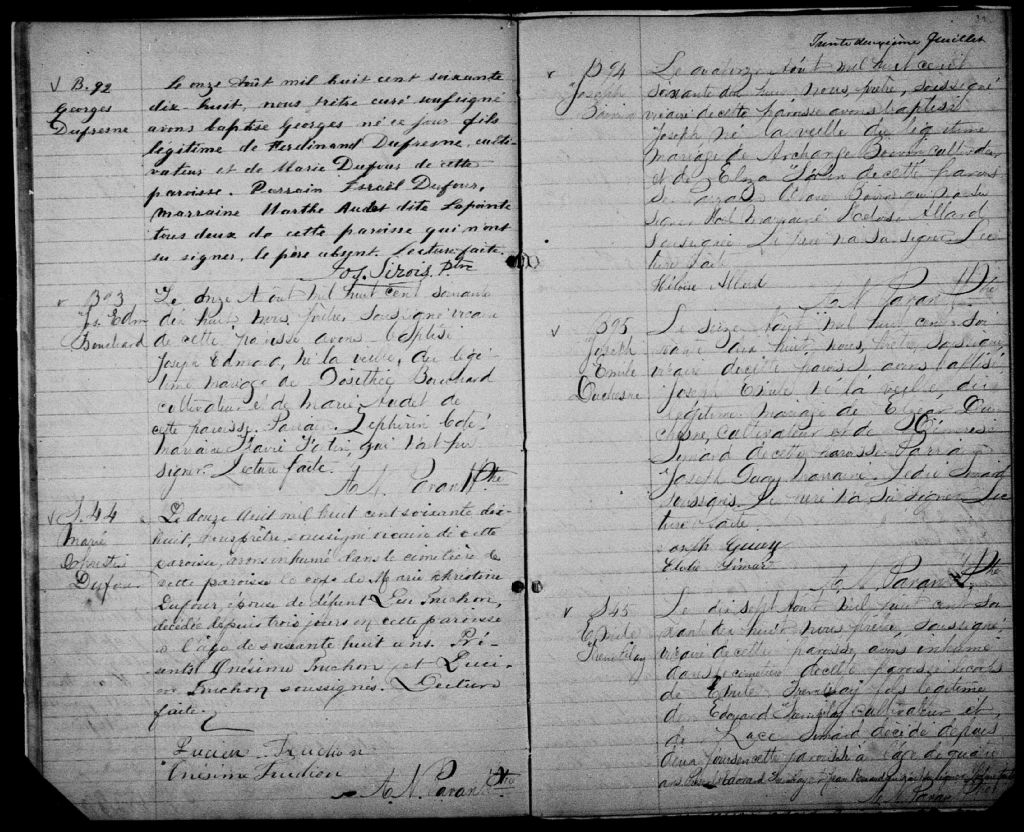 V B. 92
Georges
Dufresne
Le onze Août mil huit cent soixante
dix-huit, nous prêtre curé soussigné
avons baptisé Georges né ce jour fils
légitime de Ferdinand Dufresne, culti-
vateur et de Marie Dufour de cette
paroisse. Parrain Israël Dufour,
marraine Marthe Audet dite Lapointe
tous deux de cette paroisse qui n'ont
su signer, le père absent. Lecture faite.
Jos. Sirois, Ptre
v B 93
Jos. Edm
Bouchard
Le onze Août mil huit cent soixante
dix huit, nous, prêtre, soussigné vicaire
de cette paroisse avons baptisé
Joseph Edmond, né la veille, du légi-
time mariage de Dosithée Bouchard
cultivateur et de Marie Audet de
cette paroisse. Parrain Zéphirin Coté
marraine Flavie Fortin, qui n'ont pu
signer. Lecture faite.
A. N. Parant Ptre
v S. 44
Marie
Christi
Dufour
Le douze Août mil huit cent soixante dix-
huit, nous prêtre, soussigné vicaire de cette
paroisse, avons inhumé dans le cimetière de
cette paroisse le corps de Marie Christine
Dufour, épouse de défunt Luc Truchon,
décédée depuis trois jours en cette paroisse
à l'âge de soixante huit ans. Pré-
sents Onésime Truchon et Luci-
en Truchon soussignés. Lecture
faite.
Lucien Truchon
Onésime Truchon
A. N. Parant Ptre
Trente deuxième feuillet
v B 94
Joseph
Boivin
Le quatorze Août mil huit cent
soixante dix huit nous, prêtre, soussigné
vicaire de cette paroisse avons baptisé
Joseph né la veille du légitime
mariage de Archange Boivin cultivateur
et de Eliza de cette paroisse
Boivin qui n'a su
signer marraine Allard
soussignée. Le père n'a su signer. Lec-
ture faite.
Héloise Allard
A. N. Parant Ptre
v B 95
Joseph
Emile
Duchesne
Le seize Août mil huit cent soi-
xante dix huit, nous, prêtre, soussigné
vicaire de cette paroisse avons baptisé
Joseph Emile né la veille, du
légitime mariage de Elzéar Du-
chesne, cultivateur et de
Simard de cette paroisse. Parrain
Joseph Guay marraine Simard
soussignés. Le père n'a su signer. Lec-
ture faite.
Joseph Guay
Simard
A. N. Parant Ptre
v S 45
Emile
Tremblay
Le dix sept Août mil huit cent soi-
xante dix huit nous prêtre, soussigné
vicaire de cette paroisse, avons inhumé
dans le cimetière de cette paroisse le corps
de Emile Tremblay fils légitime
de Edouard Tremblay cultivateur et
de Simard décédé depuis
deux jours en cette paroisse à l'âge de quatre
ans. Edouard Tremblay
A. N. Parant Ptre